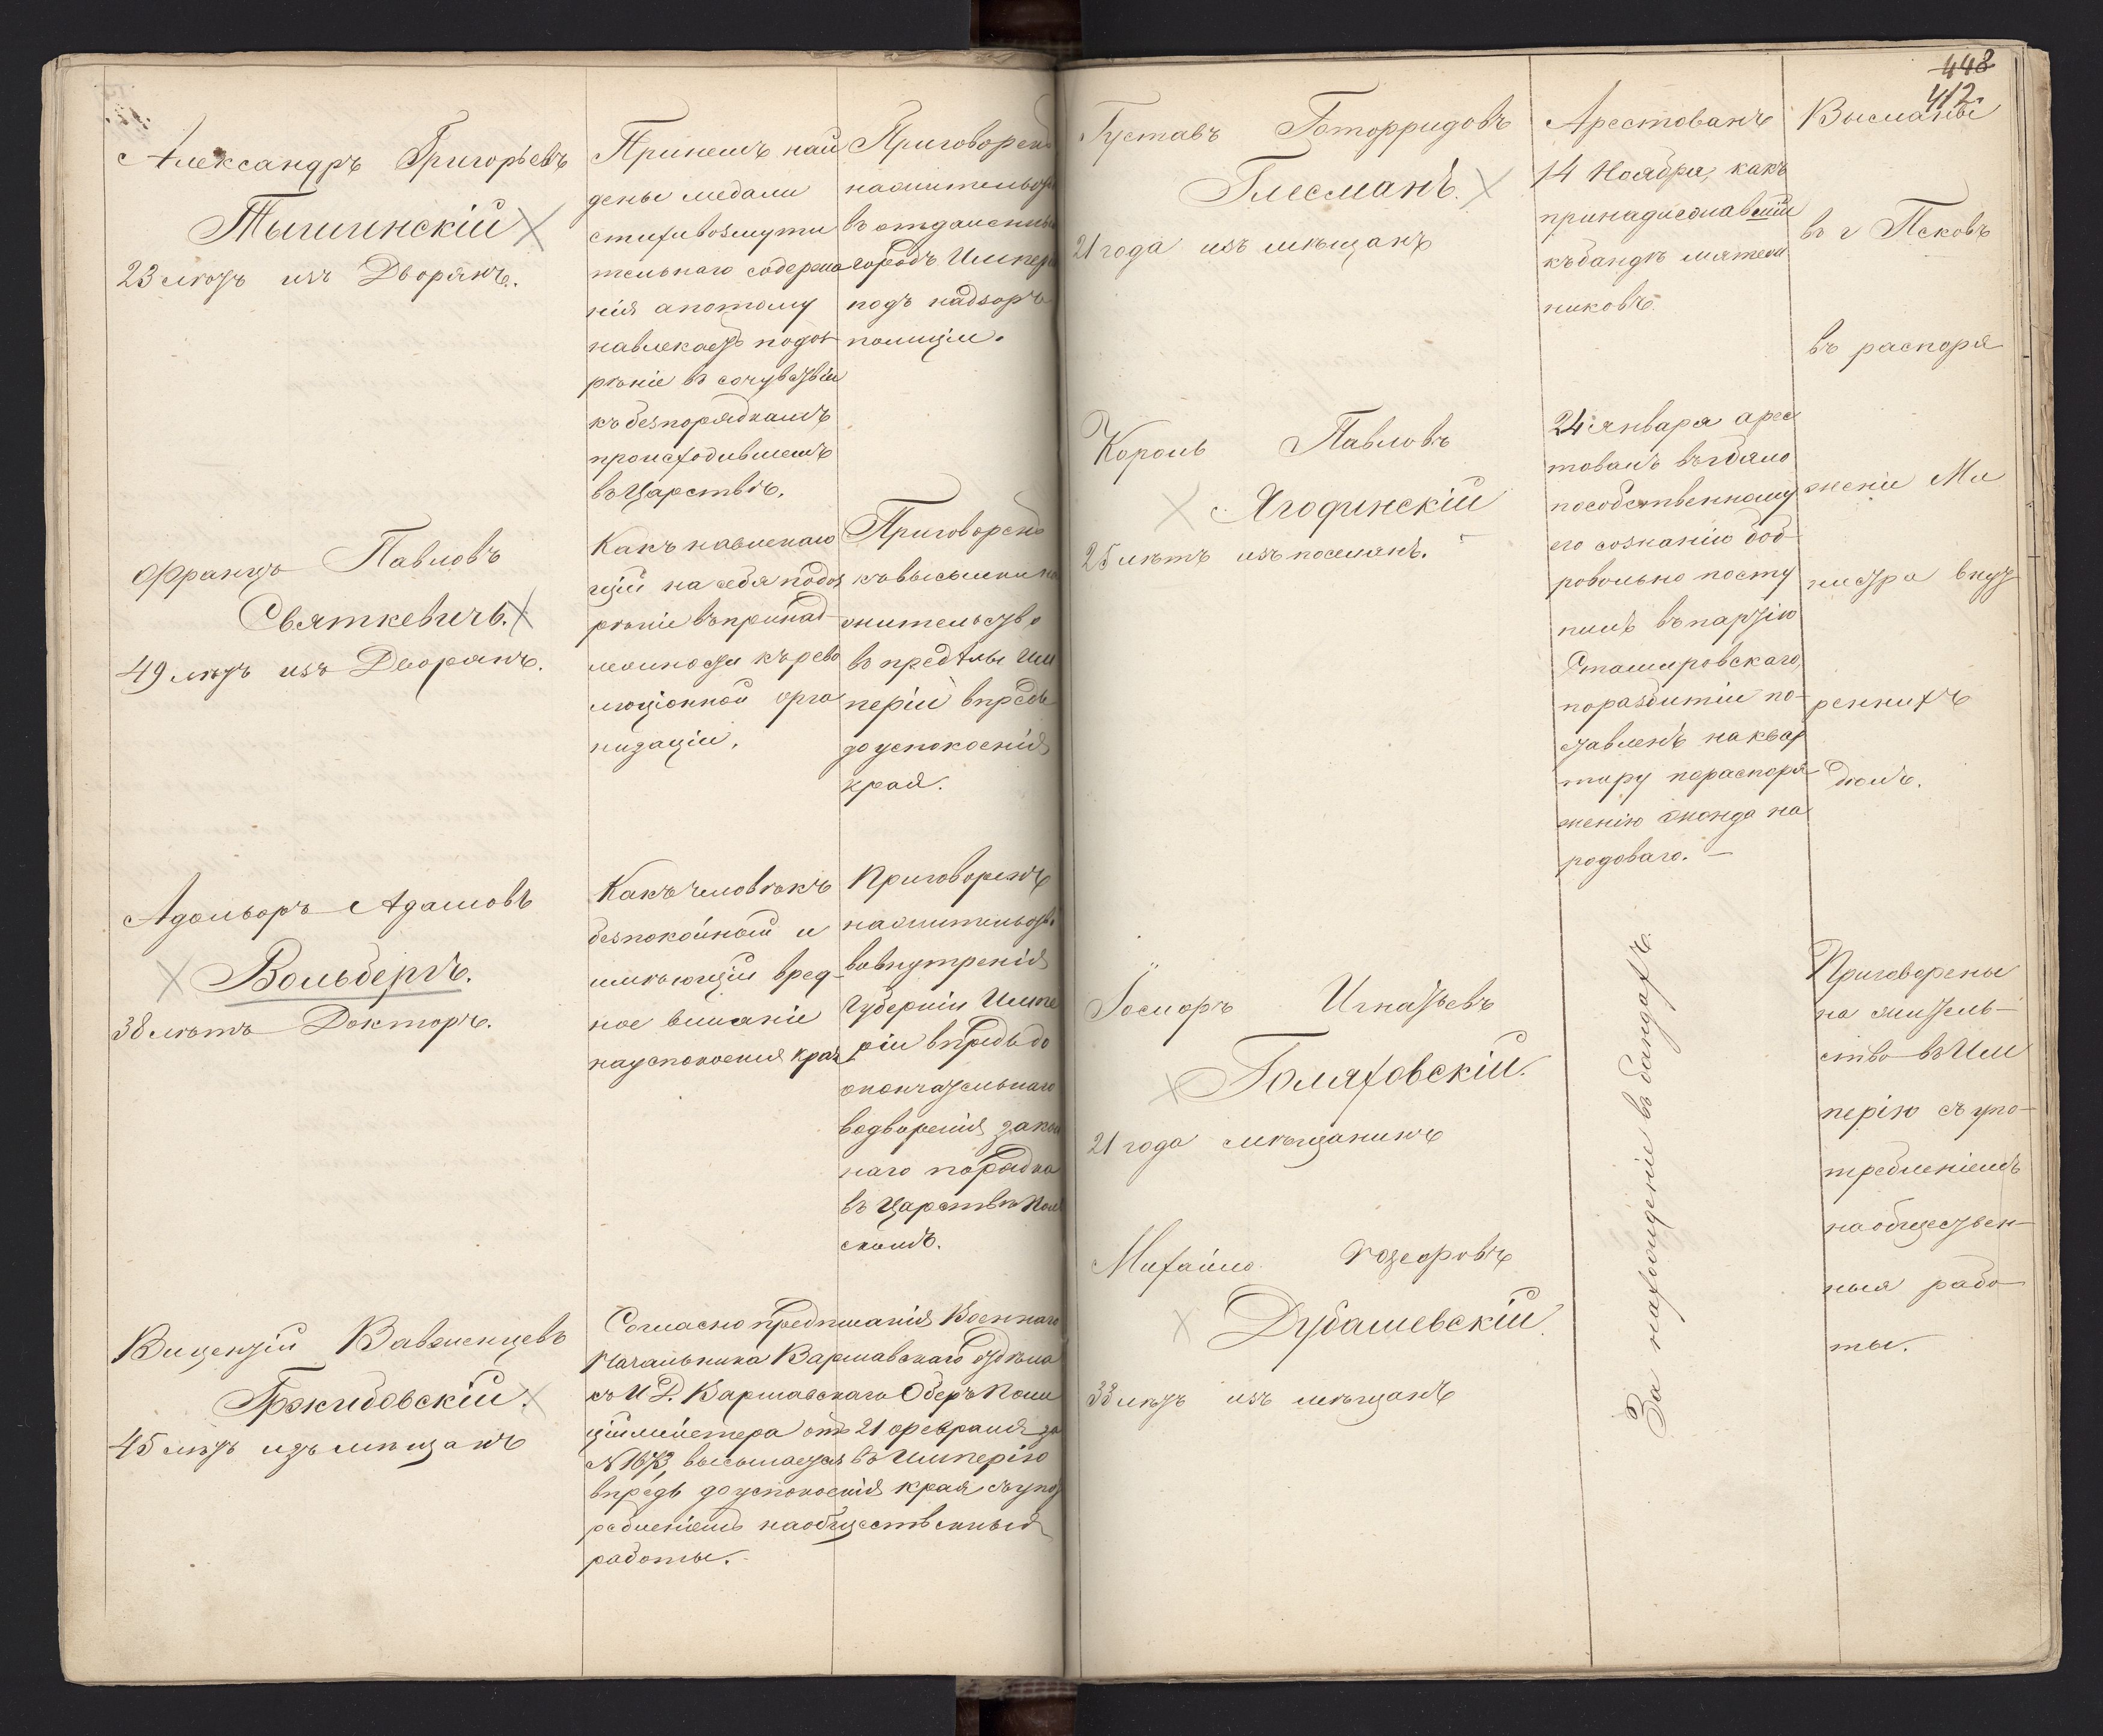 Александръ Григорьевъ
Тышинскій
23 лѣтъ изъ Дворянъ.
При немъ най
дены медали
стихи возмути
тельнаго содержа
нія а потому
навлекаетъ подоз
рѣніе въ сочувствіи
къ безпорядкамъ
происходившемъ
въ Царствѣ.
Приговоренъ
на жительство
въ отдаленные
города Импер
подъ надзоръ
полиціи.
Францъ Павловъ
Святкевичъ.
49 лѣтъ изъ Дворянъ.
Какъ навлекаю
щій на себя подоз
рѣніе въ принад
лежности къ рево
люціонной орга
низаціи.
Приговоренъ
къ высылки на
жительство
въ предѣлы Им
періи впредь
до успокоенія
края.
Адольфъ Адамовъ
Вольберъ.
38 лѣтъ Докторъ.
Какъ человѣкъ
безпокойный и
имѣющій вред-
ное вліяніе
на успокоенія края
Приговоренъ
на жительство
во внутренія
Губерніи Импе
ріи впредь до
окончательнаго
водворенія закон
наго порядка
въ Царствѣ Поль
скомъ.
Виценцій Вавженцевъ
Гржибовскій.
45 лѣтъ изъ мѣщанъ
Согласно предписанія Военнаго
Начальника Варшавскаго отдѣла
къ И. Д. Варшавскаго Оберъ Поли
ціймейстера отъ 21 февраля за
№ 1673, высылается въ Имперію
впредь до успокоенія края съ упот
ребленіемъ на общественныя
работы.
448
412.
Густавъ Готфридовъ
Глесманъ.
21 года изъ мѣщанъ
Арестованъ
14 Ноября, какъ
принадлежавшій
къ бандѣ мятеж
никовъ.
Высланы
въ г Псковъ
въ распоря
женіе Ми
нистра внут
реннихъ
дѣлъ.
Кароль Павловъ
Ягодзинскій
25 лѣтъ изъ поселянъ.
24 января арес
тованъ
по собственному
его сознанію доб
ровольно посту
пилъ въ партію
по разбитіи по-
ставленъ на квар
тиру по распоря
женію жонда на
родоваго.
Іосифъ Игнатьевъ
Голяховскій.
21 года мѣщанинъ
За нахожденіе въ бандахъ.
Приговорены
на житель-
ство въ Им
перію съ упо-
требленіемъ
на обществен-
ныя рабо
ты.
Михайло
Дубашевскій.
33 лѣтъ изъ мѣщанъ